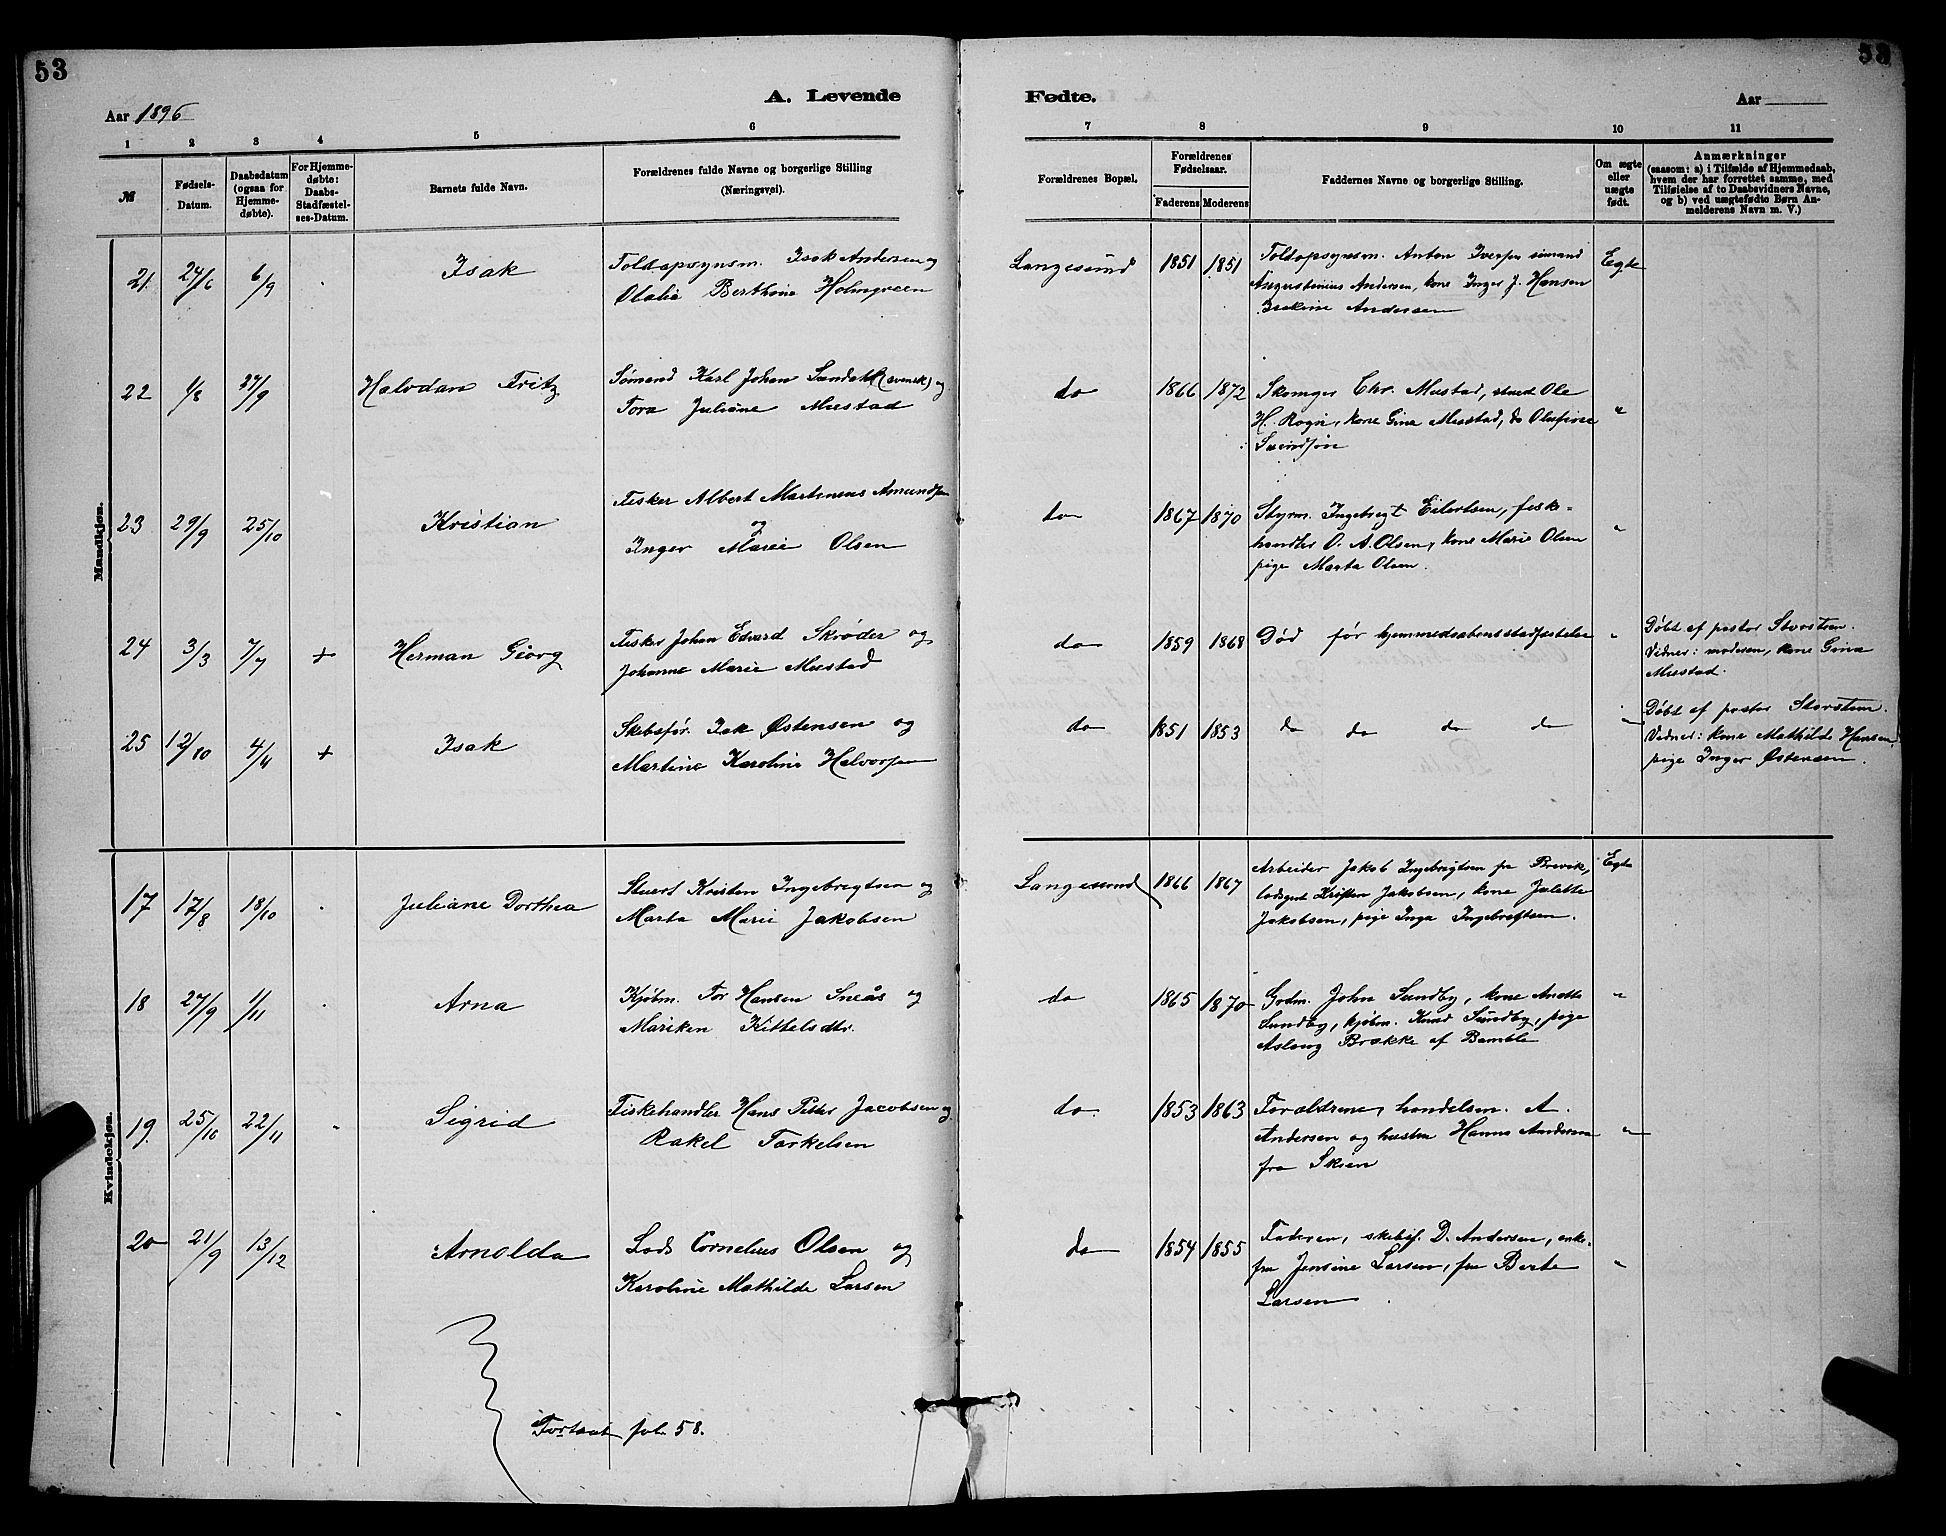 53
53
A. Levende
Fødte.
Aar 1896
Aar
1 2 3 4 5 6 7 8 9 10 11
№
Fødsels-
Datum.
Daabsdatum
(ogsaa for
Hjemme-
døbte).
For Hjemme-
døbte:
Daabs-
Stadfæstel-
ses-Datum.
Barnets fulde Navn.
Forældrenes fulde Navne og borgerlige Stilling
(Næringsvei).
Forældrenes Bopæl.
Forældrenes
Fødselsaar.
Faderens Moderens
Faddernes Navne og borgerlige Stilling.
Om ægte
eller
uægte
født.
Anmærkninger
(saasom: a) i Tilfælde af Hjemmedaab,
hvem der har forrettet samme, med
Tilføielse af to Daabsvidners Navne,
og b) ved uægtefødte Børn An-
melderens Navn m. V.)
Mandkjøn.
21 24/6 6/9 Isak
Toldopsynsm. Isak Andersen og
Otalia Berthine Holmgreen
Langesund 1851 1851
Toldopsynsm. Anton Iversen sømand
Augustinius Andersen, kone Inger J. Hansen
Andersen
Egte
22 1/8 27/9 Halvdan Fritz
Sømand Karl Johan Sundahl (svensk) og
Tora Juliane Mustad
do 1866 1872
Skomager Chr. Mustad, stuert Ole
H. Rogn, kone Gina Mustad, do Olufine
Svendsen
"
23 29/9 25/10 Kristian
Fisker Albert Martinius Amundsen
og
Inger Marie Olsen
do 1867 1870
Styrm. Ingebregt Eilertsen, fiske-
handler O. A. Olsen, kone Marie Olsen
pige Marta Olsen.
"
24 3/3 7/7 + Herman Georg
Fisker Johan Edvard Skrøder og
Johanne Marie Mustad
do 1859 1868
Død før hjemmedaabens stadfæstelse
"
Døbt af pastor Storsten.
Vidner: moderen, kone Gina
Mustad.
25 12/10 4/11 + Isak
Skibsfør. Isak Østensen og
Martine Karoline Halvorsen
do 1851 1853
do do do do
"
Døbt af pastor Storsten.
Vidner: kone Mathilde Hansen,
pige Inger Østensen.
Kvindekjøn.
17 17/8 18/10 Juliane Dorthea
Stuert Kristen Ingebregtsen og
Marta Marie Jakobsen
Langesund 1866 1867
Arbeider Jakob Ingebregtsen fra Brevik,
lodsgut Kristen Jakobsen, kone Julette
Jakobsen, pige Inga Ingebretsen.
Egte
18 27/9 1/11 Arna
Kjøbm. Tor Hansen Sneås og
Mariken Kittelsdtr.
do 1865 1870
Grdm. John Sundby, kone Anette
Sundby, kjøbm. Knud Sundby, pige
Aslaug Brække af Bamble
"
19. 25/10 22/11 Sigrid
Fiskehandler Hans Peter Jacobsen og
Rakel Torkelsen
do. 1853 1863
Forældrene, handelsm. A.
Andersen og hustru Hanna Andersen
fra Skien
"
20 21/9 13/12 Arnolda
Lods Cornelius Olsen og
Karoline Mathilde Larsen
do 1854 1855
Faderen, skibsf. D. Andersen, enke-
fru Jensine Larsen, fru Berte
Larsen
"
Fortsat fol. 58.